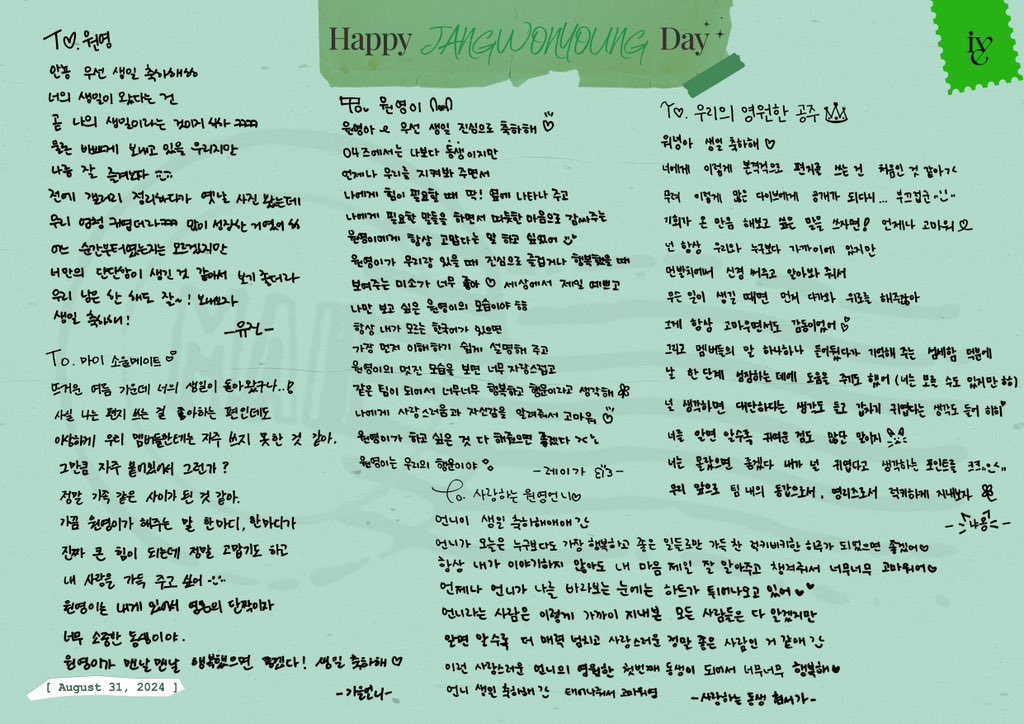 Happy JANGWONYOUNG Day
IVE
To. 원영
안뇽 우선 생일 축하해
너의 생일이 왔다는 건
곧 나의 생일이라는 것이여
우리지만
나름 잘
전에 갤러리 정리하다가 옛날 사진 봤는데
우리 엄청 귀엽더라 많이 성장한 거였어
어느 순간부터였는지는 모르겠지만
너만의 단단함이 생긴 것 같아서 보기 좋더라
우리 남은 한 해도 잘~! 보내보자
생일 축하해!
-유진-
To. 마이 소울메이트
뜨거운 여름 가운데 너의 생일이 돌아왔구나..!
사실 나는 편지 쓰는 걸 좋아하는 편인데도
이상하게 우리 멤버들한테는 자주 쓰지 못한 것 같아.
그만큼 자주 붙어있어서 그런가?
정말 가족 같은 사이가 된 것 같아.
가끔 원영이가 해주는 말 한마디, 한마디가
진짜 큰 힘이 되는데 정말 고맙기도 하고
내 사랑을 가득 주고 싶어
원영이는 내게 있어서 영혼의 단짝이자
너무 소중한 동생이야.
원영이가 맨날맨날 행복했으면 좋겠다! 생일 축하해♡
-가을언니-
[ August 31, 2024 ]
To. 원영이
원영아 우선 생일 진심으로 축하해♡
04즈에서는 나보다 동생이지만
언제나 우리를 지켜봐 주면서
나에게 힘이 필요할 때 딱! 옆에 나타나 주고
나에게 필요할 말들을 하면서 따뜻한 마음으로 감싸주는
원영이에게 항상 고맙다는 말 하고 싶었어
원영이가 우리랑 있을 때 진심으로 즐겁거나 행복했을 때
보여주는 미소가 너무 좋아♡ 세상에서 제일 예쁘고
나만 보고 싶은 원영이의 모습이야 ㅎㅎ
항상 내가 모르는 한국어가 있으면
가장 먼저 이해하기 쉽게 설명해 주고
원영이의 멋진 모습을 보면 너무 자랑스럽고
같은 팀이 되어서 너무너무 행복하고 행운이라고 생각해
나에게 사랑스러움과 자신감을 알려줘서 고마워♡
원영이가 하고 싶은 것 다 해줬으면 좋겠다
원영이는 우리의 행운이야
-레이가-
To. 사랑하는 원영언니♡
언니이 생일 축하해애애
언니가 오늘은 누구보다도 가장 행복하고 좋은 일들로만 가득 찬 럭키비키한 하루가 되었으면 좋겠어♥
항상 내가 이야기하지 않아도 내 마음 제일 잘 알아주고 챙겨줘서 너무너무 고마워어♥
언제나 언니가 나를 바라보는 눈에는 하트가 튀어나오고 있어♥♥
언니라는 사람은 이렇게 가까이 지내본 모든 사람들은 다 알겠지만
알면 알수록 더 매력 넘치고 사랑스러운 정말 좋은 사람인 거 같애
이런 사랑스러운 언니의 영원한 첫번째 동생이 되어서 너무너무 행복해♥
언니 생일 축하해 태어나줘서 고마워영
-사랑하는 동생 현서가-
To. 우리의 영원한 공주
워녕아 생일 축하해♡
너에게 이렇게 본격적으로 편지를 쓰는 건 처음인 것 같아
무려 이렇게 많은 다이브에게 공개가 되다니... 부끄럽군
기회가 온 만큼 해보고 싶은 말을 쓰자면! 언제나 고마워
넌 항상 우리와 누구보다 가까이에 있지만
먼발치에서 신경 써주고 알아봐 줘서
무슨 일이 생길 때면 먼저 다가와 위로를 해주잖아
그게 항상 고마우면서도 감동이었어
그리고 멤버들의 말 하나하나 들어뒀다가 기억해 주는 섬세함 덕분에
날 한 단계 성장하는 데에 도움을 주기도 했어 (너는 모를 수도 있지만 ㅎㅎ)
널 생각하면 대단하다는 생각도 들고 갑자기 귀엽다는 생각도 들어 히히
너를 알면 알수록 귀여운 점도 많단 말이지
너는 몰랐으면 좋겠다 내가 널 귀엽다고 생각하는 포인트를 크크
우리 앞으로 팀 내의 동갑으로서, 영리즈로서 럭키하게 지내보자